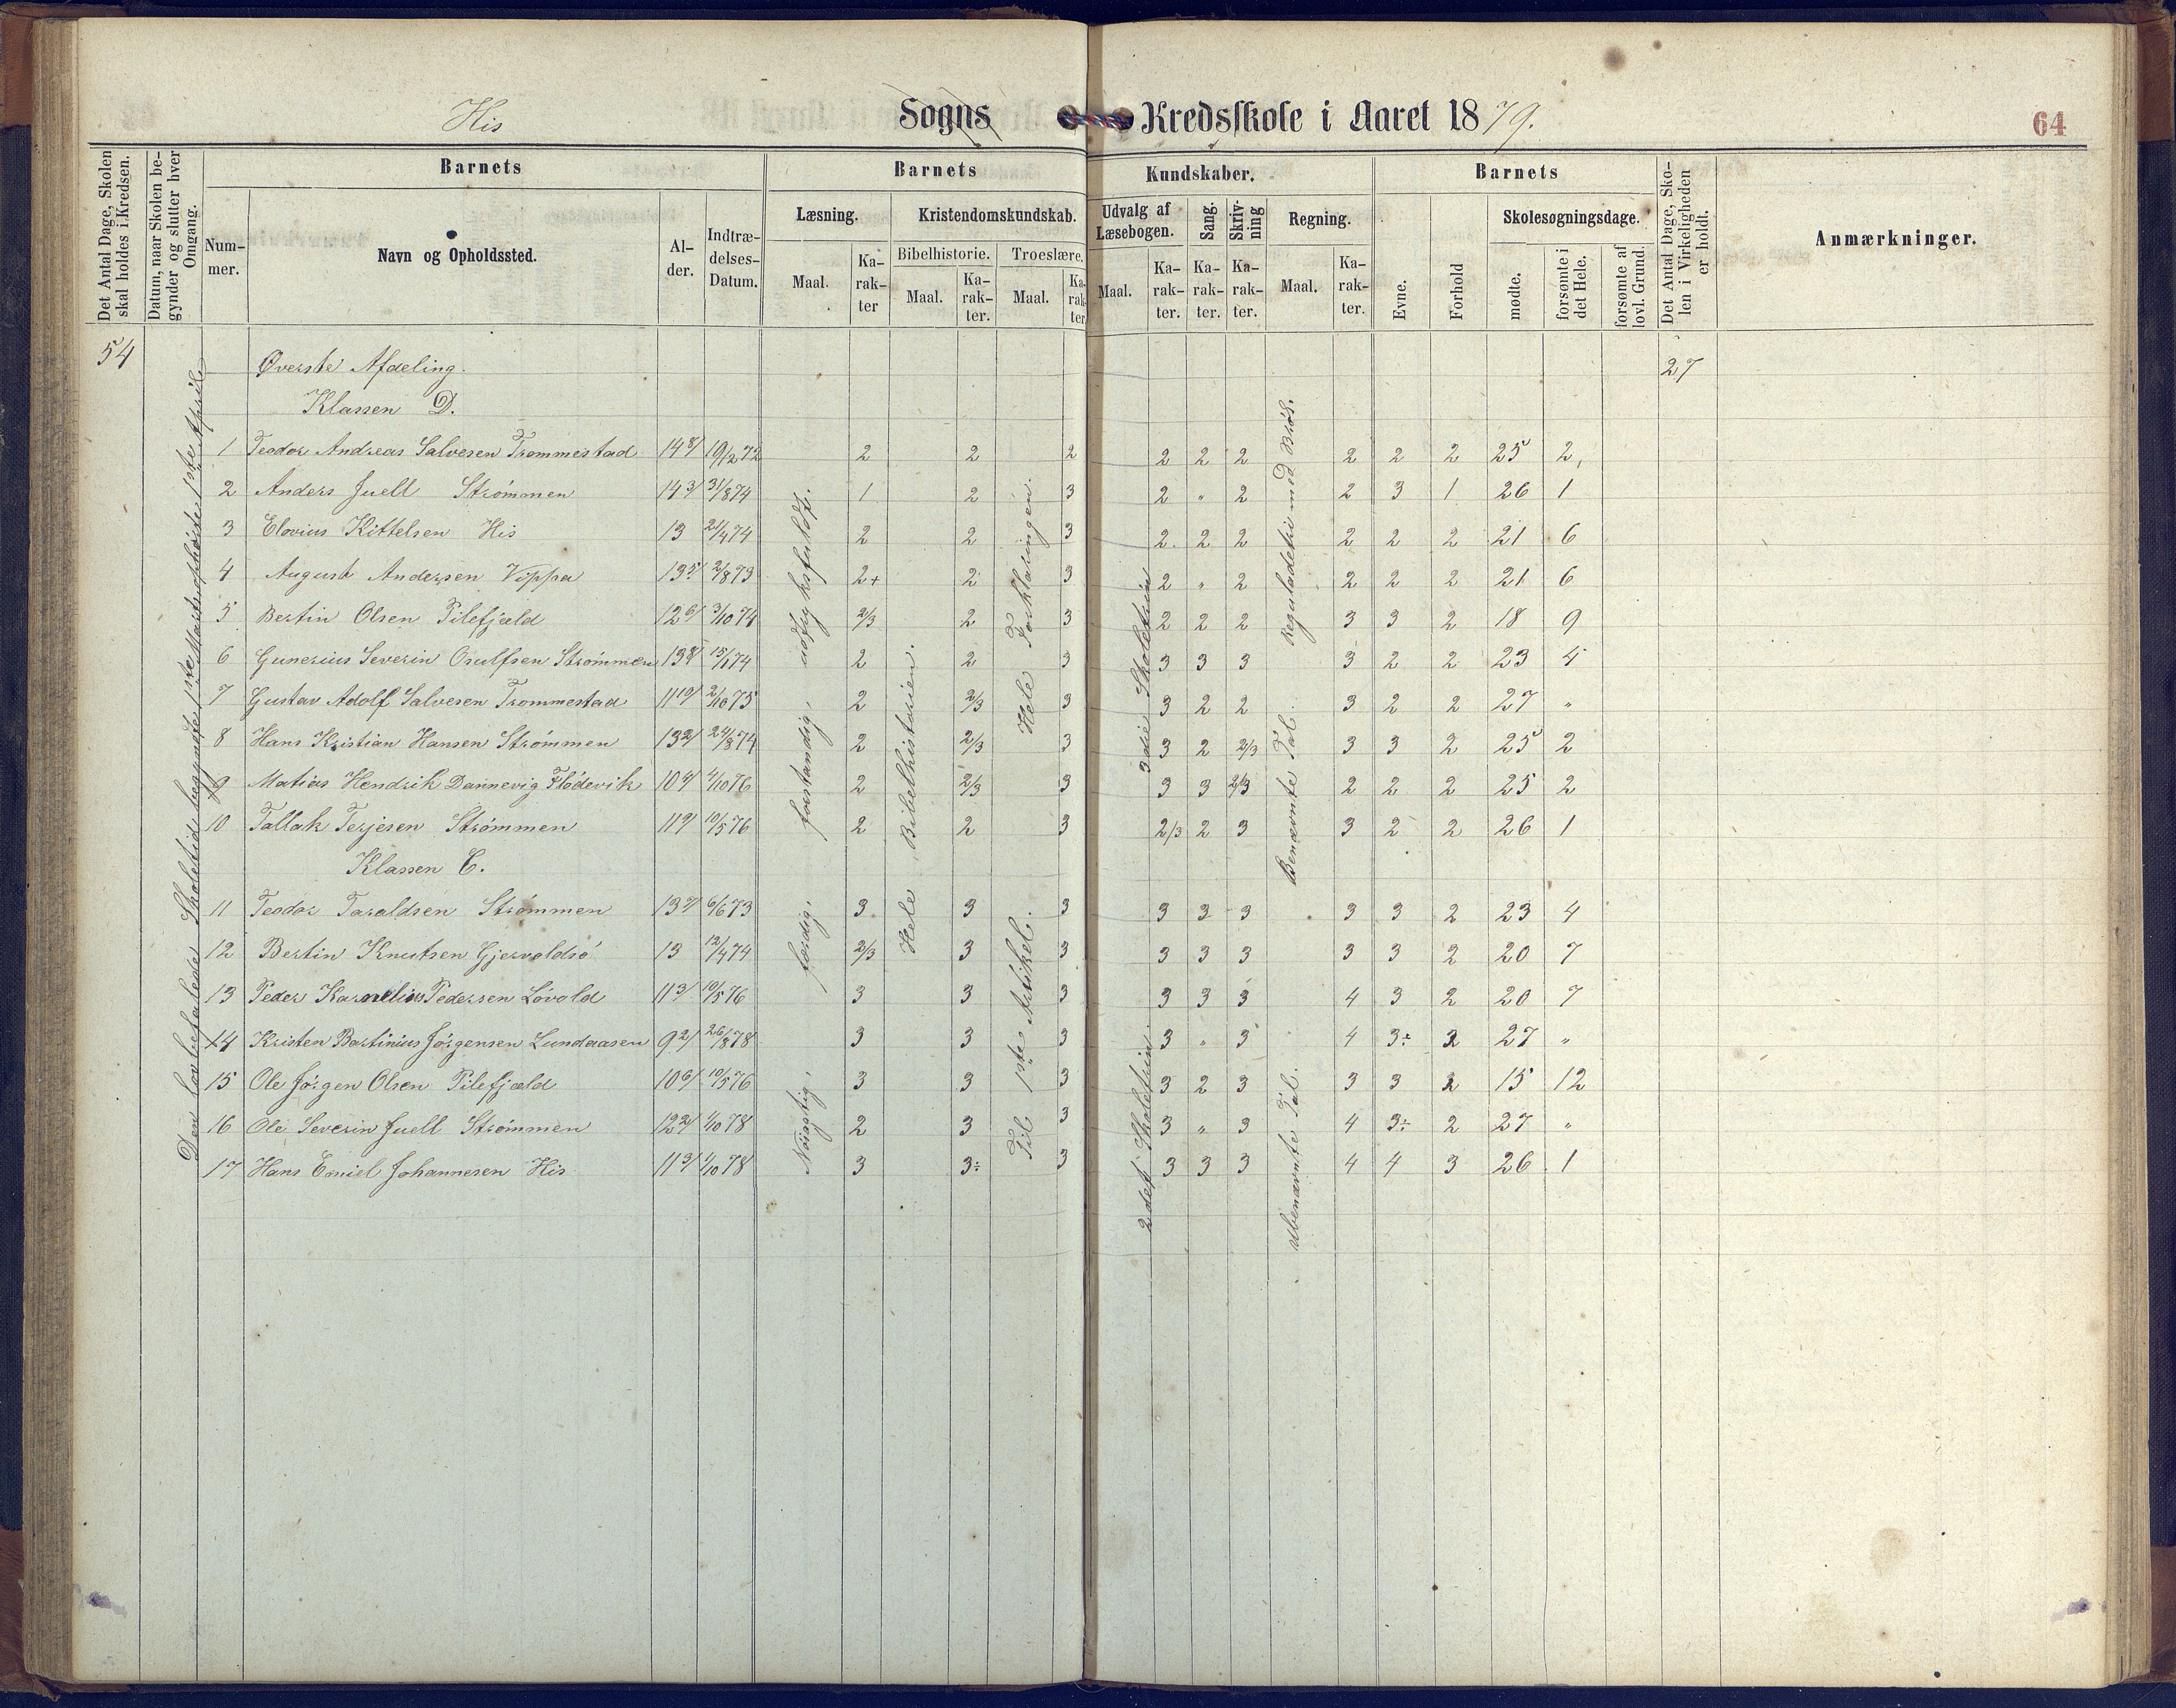 His Sogns Kredsskole i Aaret 1879.
64
Det Antal Dage, Skolen skal holdes i Kredsen.
Datum, naar Skolen begynder og slutter hver Omgang.
Barnets
Num-mer.
Navn og Opholdssted.
Al-der.
Indtræ-delses-Datum.
Barnets Kundskaber.
Læsning.
Maal.
Ka-rak-ter
Kristendomskundskab.
Bibelhistorie.
Maal.
Ka-rak-ter.
Troeslære.
Maal.
Ka-rak-ter
Udvalg af Læsebogen.
Maal.
Ka-rak-ter.
Sang.
Ka-rak-ter.
Skriv-ning
Ka-rak-ter.
Regning.
Maal.
Ka-rak-ter.
Barnets
Evne.
Forhold
Skolesøgningsdage.
mødte.
forsømte i det Hele.
forsømte af lovl. Grund
Det Antal Dage, Sko-len i Virkeligheden er holdt.
Anmærkninger.
54
27
Øverste Afdeling.
Klassen D.
1 Teodor Andreas Salvesen Trommestad 14 8/ 19/2 72 2 2 2 2 2 2 2 2 2 25 2
2 Anders Juell Strømmen 14 3/ 31/8 74 1 2 3 2 " 2 2 3 1 26 1
3 Elovius Kittelsen His 13 21/4 74 2 2 3 2 2 2 2 2 2 21 6
4 August Andersen Vippa 13 5/ 2/8 73 2+ 2 3 2 " 2 2 2 2 21 6
5 Bertin Olsen Pilefjæld 12 6/ 3/10 74 2/3 2 3 2 2 2 3 3 2 18 9
6 Gunerius Severin Osulfsen Strømmen 13 8/ 15/1 74 2 2 3 3 3 3 3 2 2 23 4
7 Gustav Adolf Salvesen Trommestad 11 10/ 2/10 75 2 2/3 3 3 2 2 3 2 2 27 "
8 Hans Kristian Hansen Strømmen 13 2/ 24/8 74 2 2/3 3 3 2 2/3 3 3 2 25 2
9 Matias Hendrik Dannevig Flödevik 10 4/ 4/10 76 2 2/3 3 3 3 2/3 2 2 2 25 2
10 Tallak Terjesen Strømmen 11 9/ 10/5 76 2 2 3 2/3 2 3 3 2 2 26 1
Klassen C.
11 Teodor Taraldsen Strømmen 13 7/ 6/6 73 3 3 3 3 3 3 3 3 2 23 4
12 Bertin Knutsen Gjervoldsø 13 12/4 74 2/3 3 3 3 3 3 3 3 2 20 7
13 Peder Karnelius Pedersen Løvold 11 3/ 10/5 76 3 3 3 3 3 3 4 3 2 20 7
14 Kristen Bertinius Jørgensen Lundaasen 9 2/ 26/8 78 3 3 3 3 " 3 4 3÷ 2 27 "
15 Ole Jørgen Olsen Pilefjæld 10 6/ 10/5 76 3 3 3 3 2 3 3 3 2 15 12
16 Ole Severin Juell Strømmen 12 2/ 1/10 78 2 3 3 3 " 3 4 3÷ 2 27 "
17 Hans Emiel Johannesen His 11 3/ 1/10 78 3 3÷ 3 3 3 3 4 4 3 26 1
Den lovbefalede Skoletid begyndte 1ste Marts ophørte 1ste April
Nøiagtig, færdig, forstandig, udtryksfuldt.
Hele Bibelhistorien.
Til 1ste Artikel.
Hele Forklaringen.
2det Skoletrin.
3die Skoletrin
Ubenævnte Tal.
Benævnte Tal.
Reguladetri med Brøk.